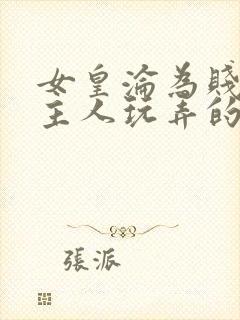 女皇淪為賤
主人玩弄的
張派